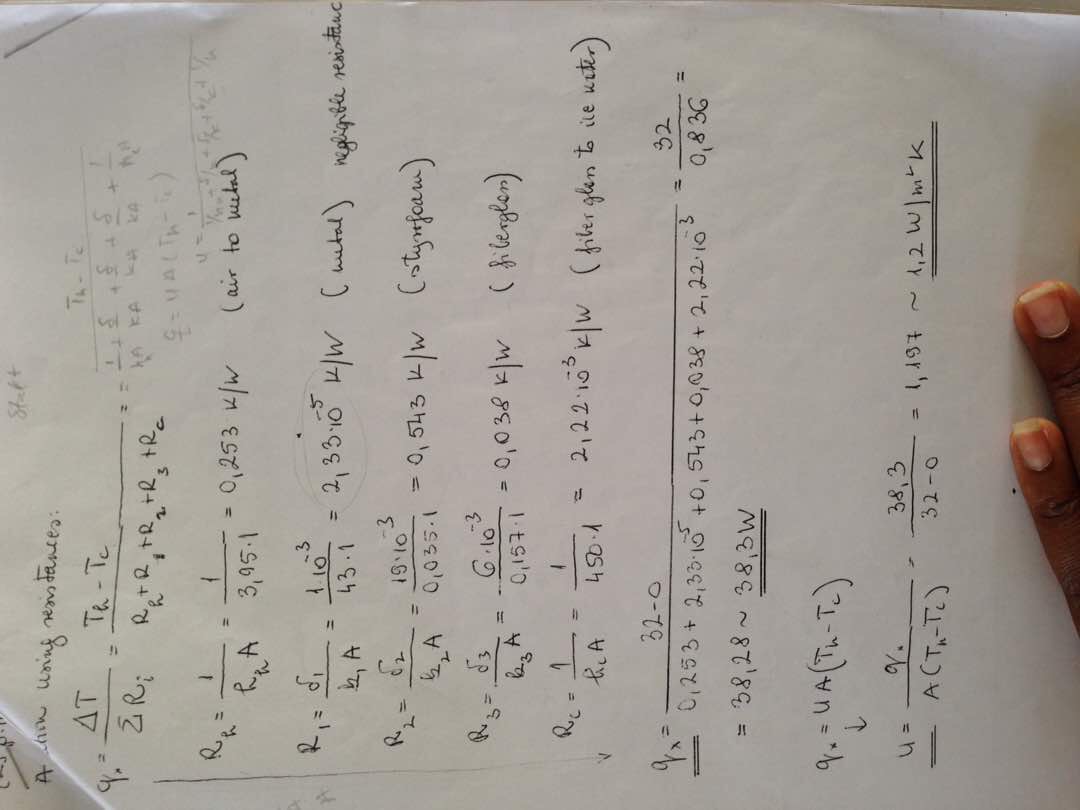 Start
A ... using resistances:
qₓ = ΔT / ΣRᵢ = (Th - Tc) / (Rh + R1 + R2 + R3 + Rc) = = (Th - Tc) / (1/(hhA) + δ/(kA) + δ/(kA) + δ/(kA) + 1/(hcA))
q = UA(Th - Tc)
Rh = 1/(hh A) = 1/(3,95·1) = 0,253 K/W (air to metal)
R1 = δ1/(k1 A) = 1·10⁻³/(43·1) = 2,33·10⁻⁵ K/W (metal) negligible
R2 = δ2/(k2 A) = 19·10⁻³/(0,035·1) = 0,543 K/W (styrofoam)
R3 = δ3/(k3 A) = 6·10⁻³/(0,157·1) = 0,038 K/W (fiberglass)
Rc = 1/(hc A) = 1/(450·1) = 2,22·10⁻³ K/W (fiberglass to ice water)
qₓ = (32-0) / (0,253 + 2,33·10⁻⁵ + 0,543 + 0,038 + 2,22·10⁻³) = 32 / 0,836 =
= 38,28 ~ 38,3 W
qₓ = UA(Th - Tc)
↓
U = qₓ / (A(Th - Tc)) = 38,3 / (32-0) = 1,197 ~ 1,2 W/m²K